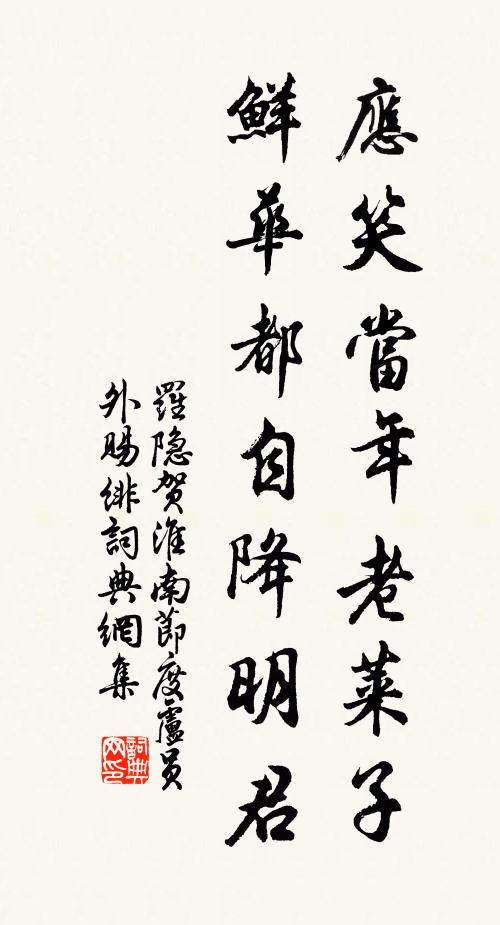 應笑當年老萊子
鮮華都自降明君
羅隐贺淮南節度盧员
外賜緋詞典網集
詞典
网印